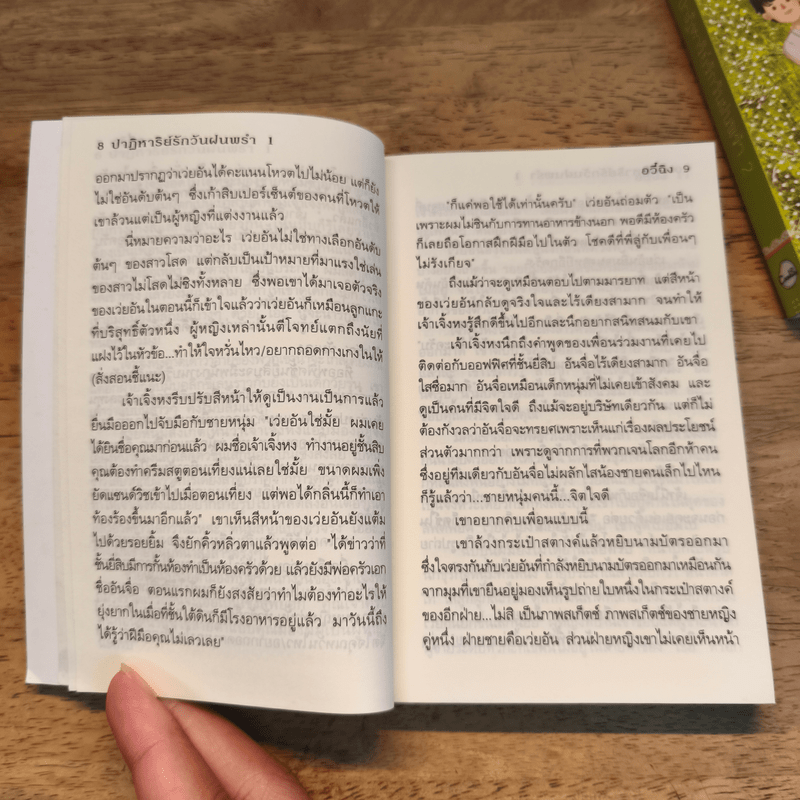 8 ปาฏิหาริย์รักวันฝนพรำ 1
ออกมาปรากฏว่าเว่ยอันได้คะแนนโหวตไปไม่น้อย แต่ก็ยัง
ไม่ใช่อันดับต้นๆ ซึ่งเก้าสิบเปอร์เซ็นต์ของคนที่โหวตให้
เขาล้วนแต่เป็นผู้หญิงที่แต่งงานแล้ว
นี่หมายความว่าอะไร เว่ยอันไม่ใช่ทางเลือกอันดับ
ต้นๆ ของสาวโสด แต่กลับเป็นเป้าหมายที่มาแรงใช่เล่น
ของสาวไม่โสดไม่ซิงทั้งหลาย ซึ่งพอเขาได้มาเจอตัวจริง
ของเว่ยอันในตอนนี้ก็เข้าใจแล้วว่าเว่ยอันก็เหมือนลูกแกะ
ที่บริสุทธิ์ตัวหนึ่ง ผู้หญิงเหล่านั้นตีโจทย์แตกถึงนัยที่
แฝงไว้ในหัวข้อ...ทำให้ใจหวั่นไหว/อยากถอดกางเกงในให้
(สั่งสอนชี้แนะ)
เจ้าเจิ้งหงรีบปรับสีหน้าให้ดูเป็นงานเป็นการแล้ว
ยื่นมือออกไปจับมือกับชายหนุ่ม "เว่ยอันใช่มั้ย ผมเคย
ได้ยินชื่อคุณมาก่อนแล้ว ผมชื่อเจ้าเจิ้งหง ทำงานอยู่ชั้นสิบ
คุณต้องทำครีมสตูตอนเที่ยงแน่เลยใช่มั้ย ขนาดผมเพิ่ง
ยัดแซนด์วิชเข้าไปเมื่อตอนเที่ยง แต่พอได้กลิ่นนี้ก็ทำเอา
ท้องร้องขึ้นมาอีกแล้ว" เขาเห็นสีหน้าของเว่ยอันยังแต้ม
ไปด้วยรอยยิ้ม จึงยักคิ้วหลิ่วตาแล้วพูดต่อ "ได้ข่าวว่าที่
ชั้นยี่สิบมีการกั้นห้องทำเป็นห้องครัวด้วย แล้วยังมีพ่อครัวเอก
ชื่ออันจื่อ ตอนแรกผมก็ยังสงสัยว่าทำไมต้องทำอะไรให้
ยุ่งยากในเมื่อที่ชั้นใต้ดินก็มีโรงอาหารอยู่แล้ว มาวันนี้ถึง
ได้รู้ว่าฝีมือคุณไม่เลวเลย"
อวี้ฉิง 9
"ก็แค่พอใช้ได้เท่านั้นครับ" เว่ยอันถ่อมตัว "เป็น
เพราะผมไม่ชินกับการทานอาหารข้างนอก พอดีมีห้องครัว
ก็เลยถือโอกาสฝึกฝีมือไปในตัว โชคดีที่พี่สู่กับเพื่อนๆ
ไม่รังเกียจ"
ถึงแม้ว่าจะดูเหมือนตอบไปตามมารยาท แต่สีหน้า
ของเว่ยอันกลับดูจริงใจและไร้เดียงสามาก จนทำให้
เจ้าเจิ้งหงรู้สึกดีขึ้นไปอีกและนึกอยากสนิทสนมกับเขา
เจ้าเจิ้งหงนึกถึงคำพูดของเพื่อนร่วมงานที่เคยไป
ติดต่อกับออฟฟิศที่ชั้นยี่สิบ อันจื่อไร้เดียงสามาก อันจื่อ
ใสซื่อมาก อันจื่อเหมือนเด็กหนุ่มที่ไม่เคยเข้าสังคม และ
ดูเป็นคนที่มีจิตใจดี ถึงแม้จะอยู่บริษัทเดียวกัน แต่ก็ไม่
ต้องกังวลว่าอันจื่อจะทรยศเพราะเห็นแก่เรื่องผลประโยชน์
ส่วนตัวมากกว่า เพราะดูจากการที่พวกเจนโลกอีกห้าคน
ซึ่งอยู่ทีมเดียวกับอันจื่อไม่ผลักไสน้องชายคนเล็กไปไหน
ก็รู้แล้วว่า...ชายหนุ่มคนนี้...จิตใจดี
เขาอยากคบเพื่อนแบบนี้
เขาล้วงกระเป๋าสตางค์แล้วหยิบนามบัตรออกมา
ซึ่งใจตรงกันกับเว่ยอันที่กำลังหยิบนามบัตรออกมาเหมือนกัน
จากมุมที่เขายืนอยู่มองเห็นรูปถ่ายใบหนึ่งในกระเป๋าสตางค์
ของอีกฝ่าย...ไม่สิ เป็นภาพสเก็ตซ์ ภาพสเก็ตซ์ของชายหญิง
คู่หนึ่ง ฝ่ายชายคือเว่ยอัน ส่วนฝ่ายหญิงเขาไม่เคยเห็นหน้า